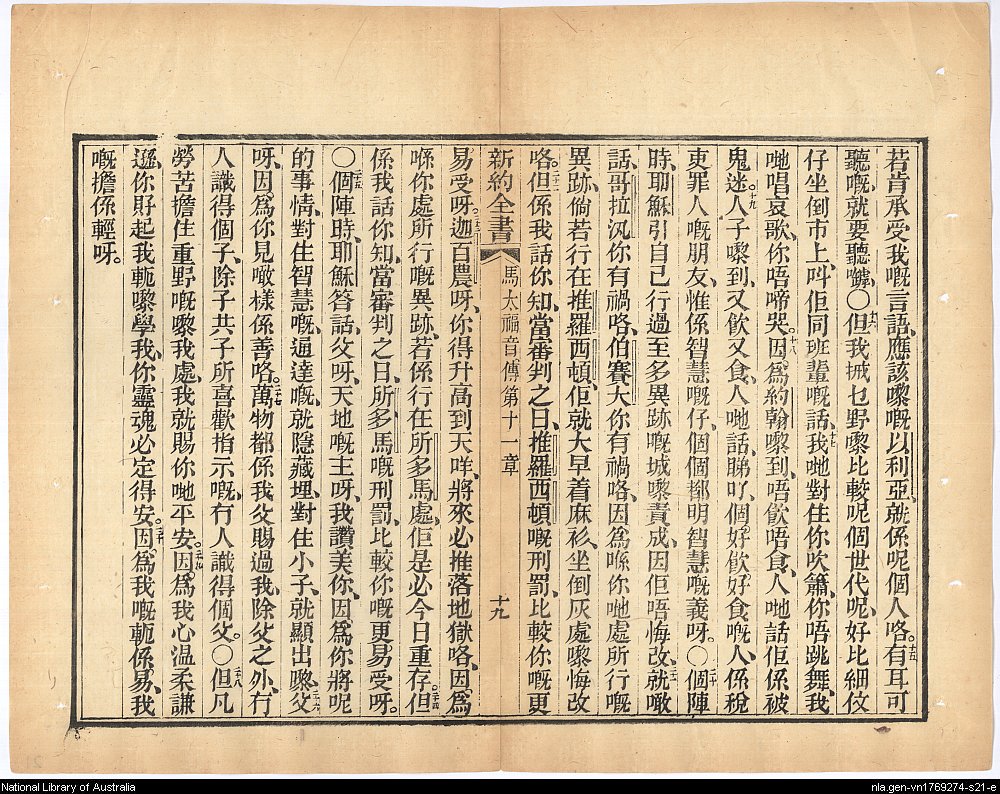 若肯承受我嘅言語、應該嚟嘅以利亞、就係呢個人咯。十五有耳可
聽嘅、就要聽罅、〇十六但我搣乜野嚟比較呢個世代呢、好比細伩
仔坐倒市上、叫佢同班輩嘅話、十七我哋對住你吹簫、你唔跳舞、我
哋唱哀歌、你唔啼哭。十八因爲約翰嚟到、唔飲唔食、人哋話佢係被
鬼迷。十九人子嚟到、又飲又食、人哋話、睇吖、個好飲好食嘅人、係稅
吏罪人嘅朋友、惟係智慧嘅仔、個個都明智慧嘅義呀。〇二十個陣
時、耶穌引自己行過至多異跡嘅城嚟責成、因佢唔悔改、二一就噉
話、哥拉汛你有禍咯、伯賽大你有禍咯、因爲喺你哋處所行嘅
異跡、倘若行在推羅西頓、佢就大早着麻衫、坐倒灰處嚟悔改
咯。二二但係我話你知、當審判之日、推羅西頓嘅刑罰、比較你嘅更
新約全書 馬太福音傳第十一章 十九
易受呀。二三迦百農呀、你得升高到天咩、將來必推落地獄咯、因爲
喺你處所行嘅異跡、若係行在所多馬處、佢是必今日重存。二四但
係我話你知、當審判之日、所多馬嘅刑罰、比較你嘅更易受呀。
〇二五個陣時、耶穌答話、父呀、天地嘅主呀、我讚美你、因爲你將呢
的事情、對住智慧嘅、通達嘅、就隱藏埋、對住小子、就顯出嚟、二六父
呀、因爲你見噉樣係善咯。二七萬物都係我父賜過我、除父之外、冇
人識得個子、除子共子所喜歡指示嘅、冇人識得個父。〇二八但凡
勞苦擔住重野嘅嚟我處、我就賜你哋平安。二九因爲我心温柔謙
遜、你好起我軛嚟學我、你靈魂必定得安。三十因爲我嘅軛係易、我
嘅擔係輕呀。
National Library of Australia
nla.gen-vn1769274-s21-e